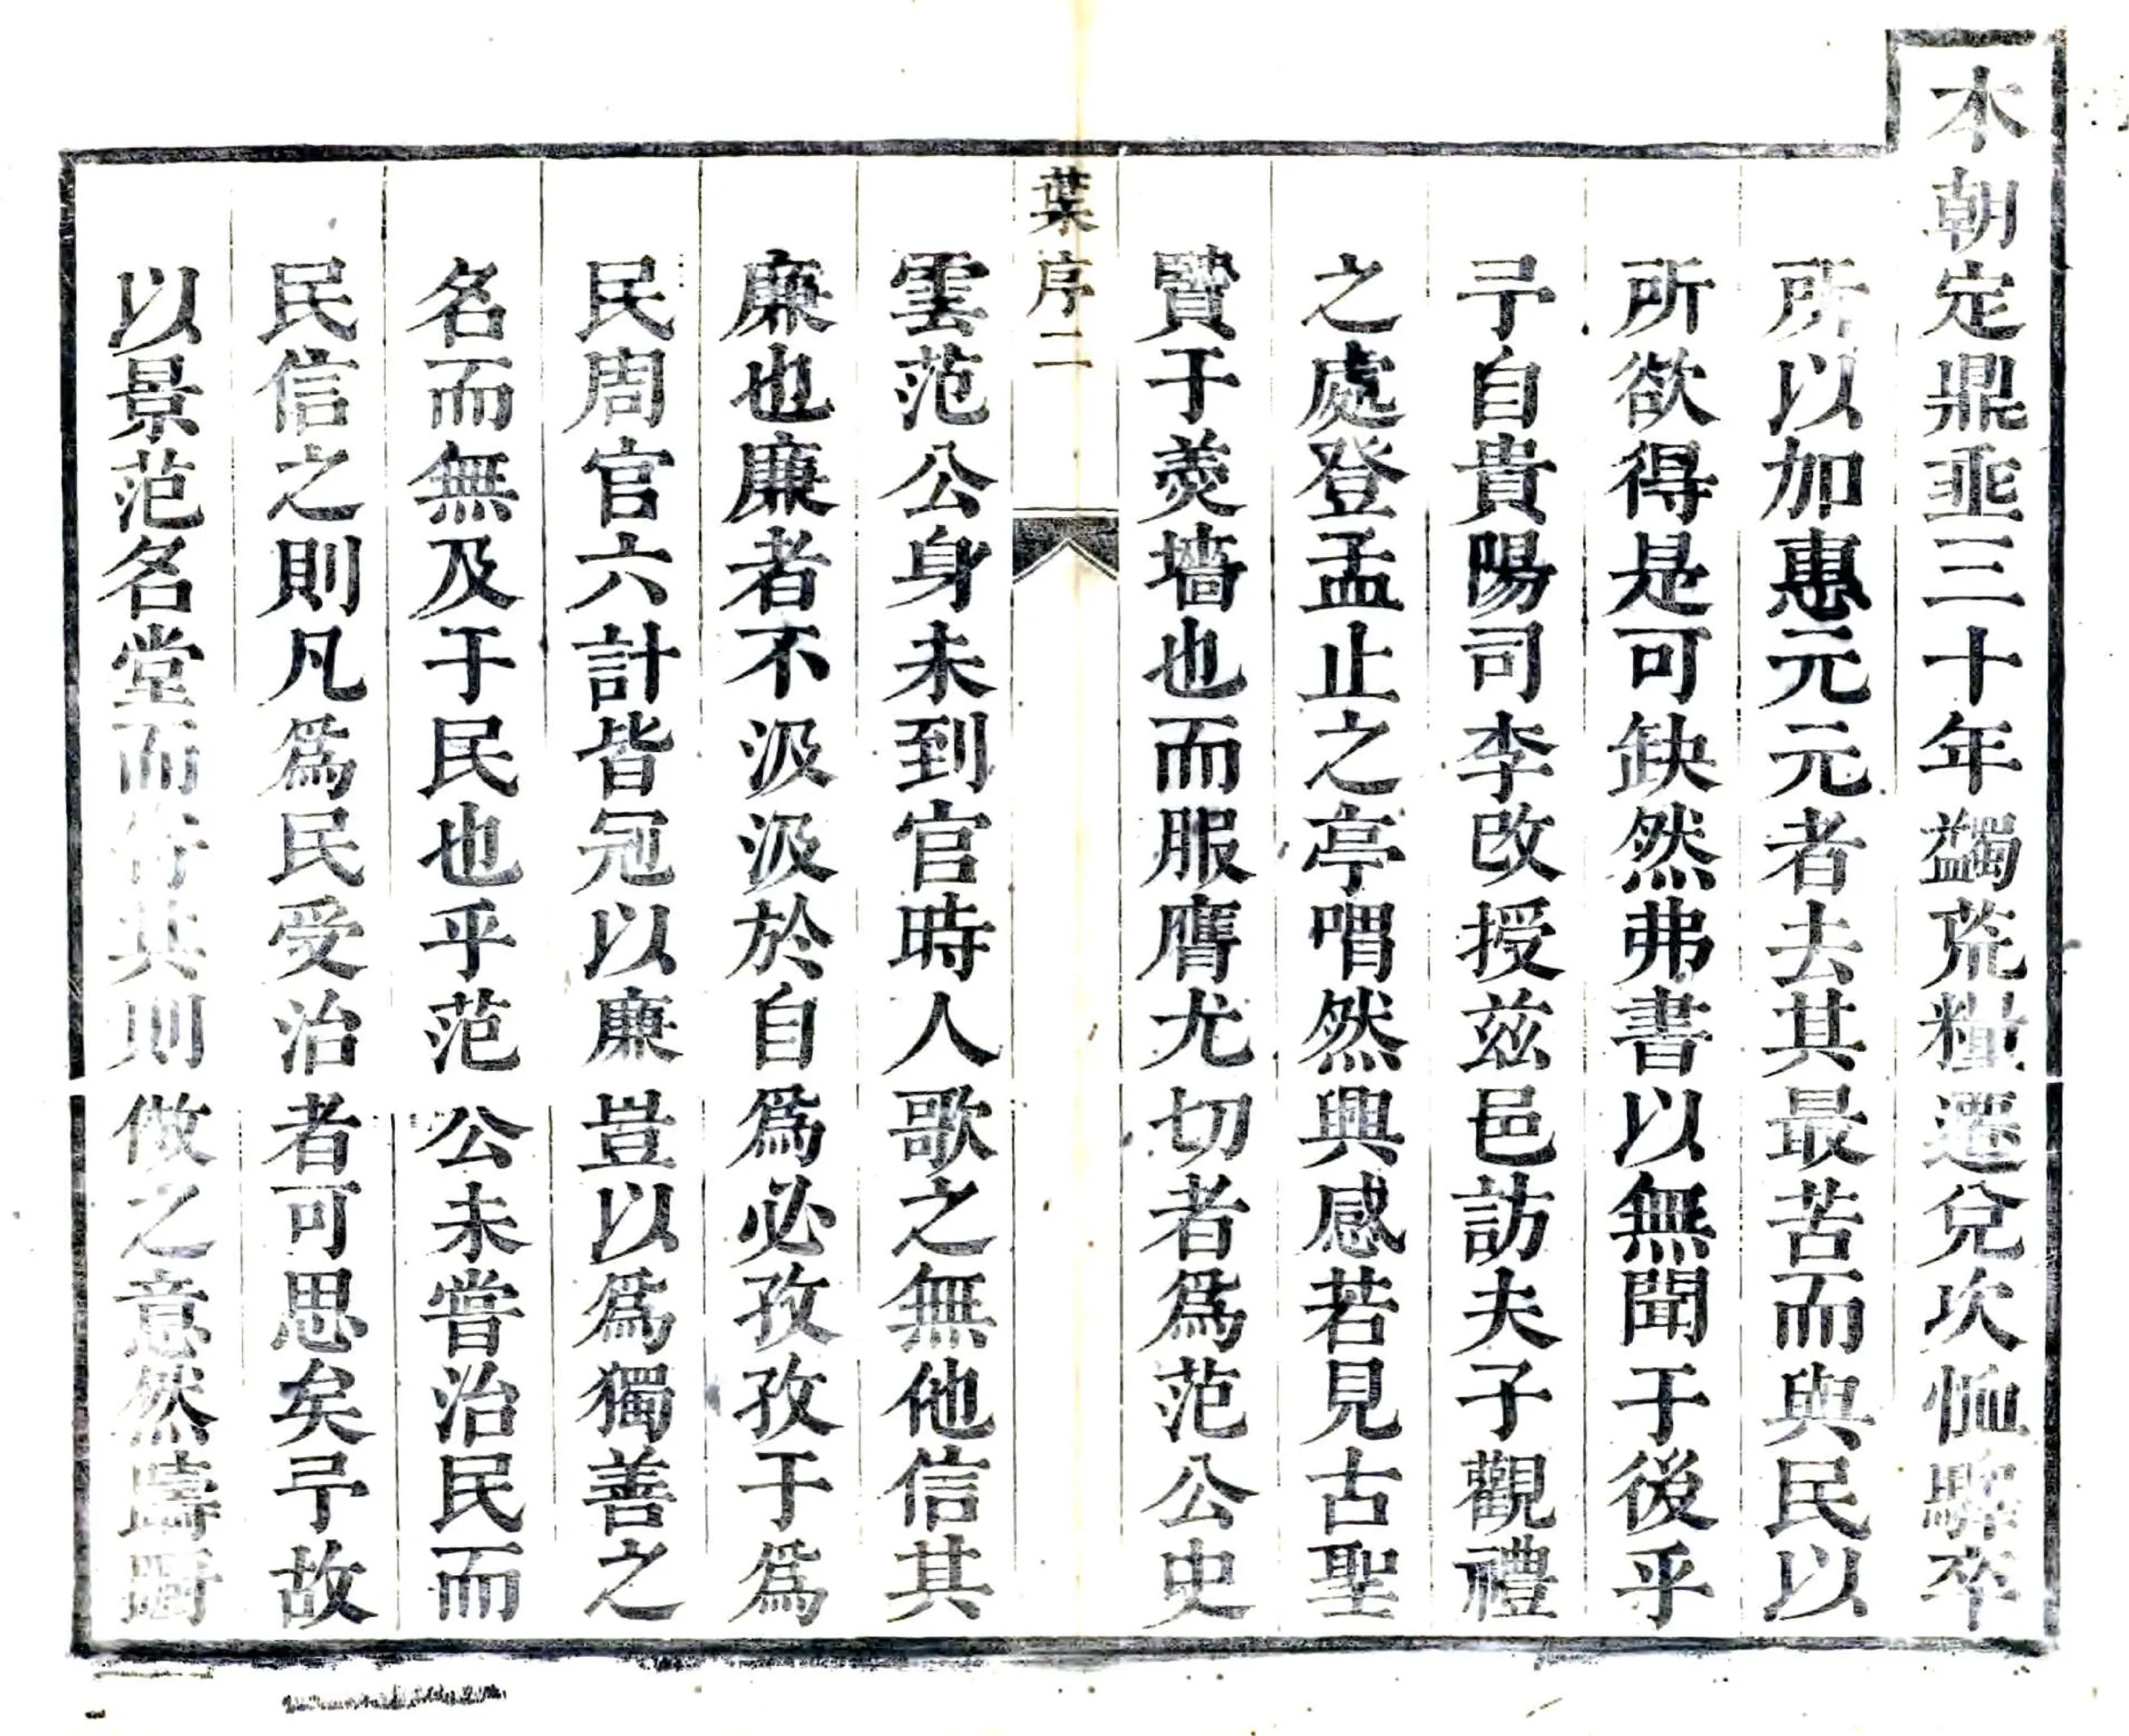 本朝定鼎埀三十年蠲荒糧遷兌次恤驛卒
所以加惠元元者去其最苦而與民以
所欲得是可缺然弗書以無聞于後乎
予自貴陽司李改授茲邑訪夫子觀禮
之處登孟止之亭喟然興感若見古聖
賢于羮墻也而服膺尤切者爲范公史
葉序二
雲范公身未到官時人歌之無他信其
廉也廉者不汲汲於自爲必孜孜于爲
民周官六計皆冠以廉豈以爲獨善之
名而無及于民也乎范公未嘗治民而
民信之則凡爲民受治者可思矣予故
以景范名堂而 其則倣之意然躊躇